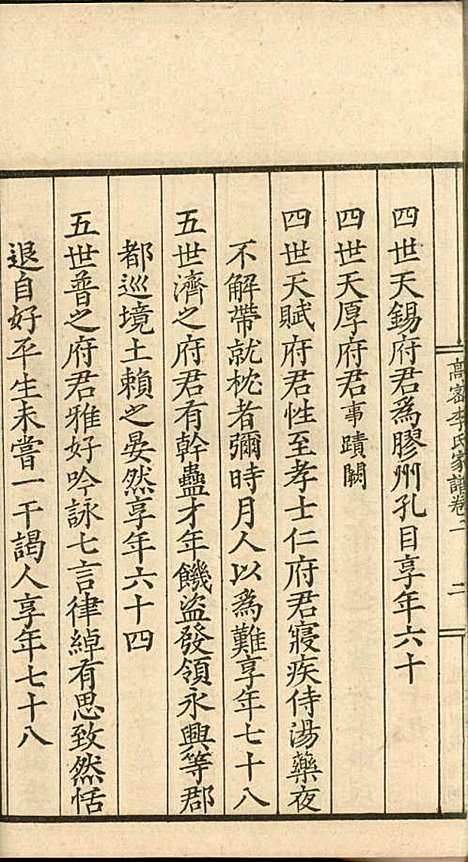 高密李氏家譜卷二　二
四世天錫府君爲膠州孔目享年六十
四世天厚府君事蹟闕
四世天賦府君性至孝士仁府君寢疾侍湯藥夜
不解帶就枕者彌時月人以爲難享年七十八
五世濟之府君有幹蠱才年饑盜發領永興等郡
都巡境土賴之晏然享年六十四
五世普之府君雅好吟詠七言律綽有思致然恬
退自好平生未嘗一干謁人享年七十八